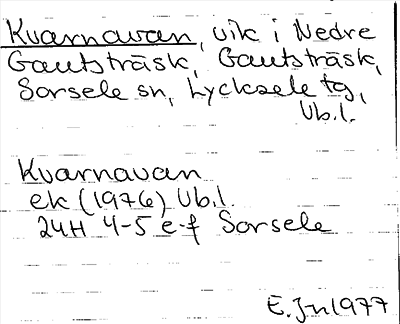 Kvarnavan, vik i Nedre
Gautsträsk, Gautsträsk,
Sorsele sn, Lycksele tg,
Vb.l.
Kvarnavan
ek (1976) Vb.l.
24H 4-5 e-f Sorsele
E.Jn 1977